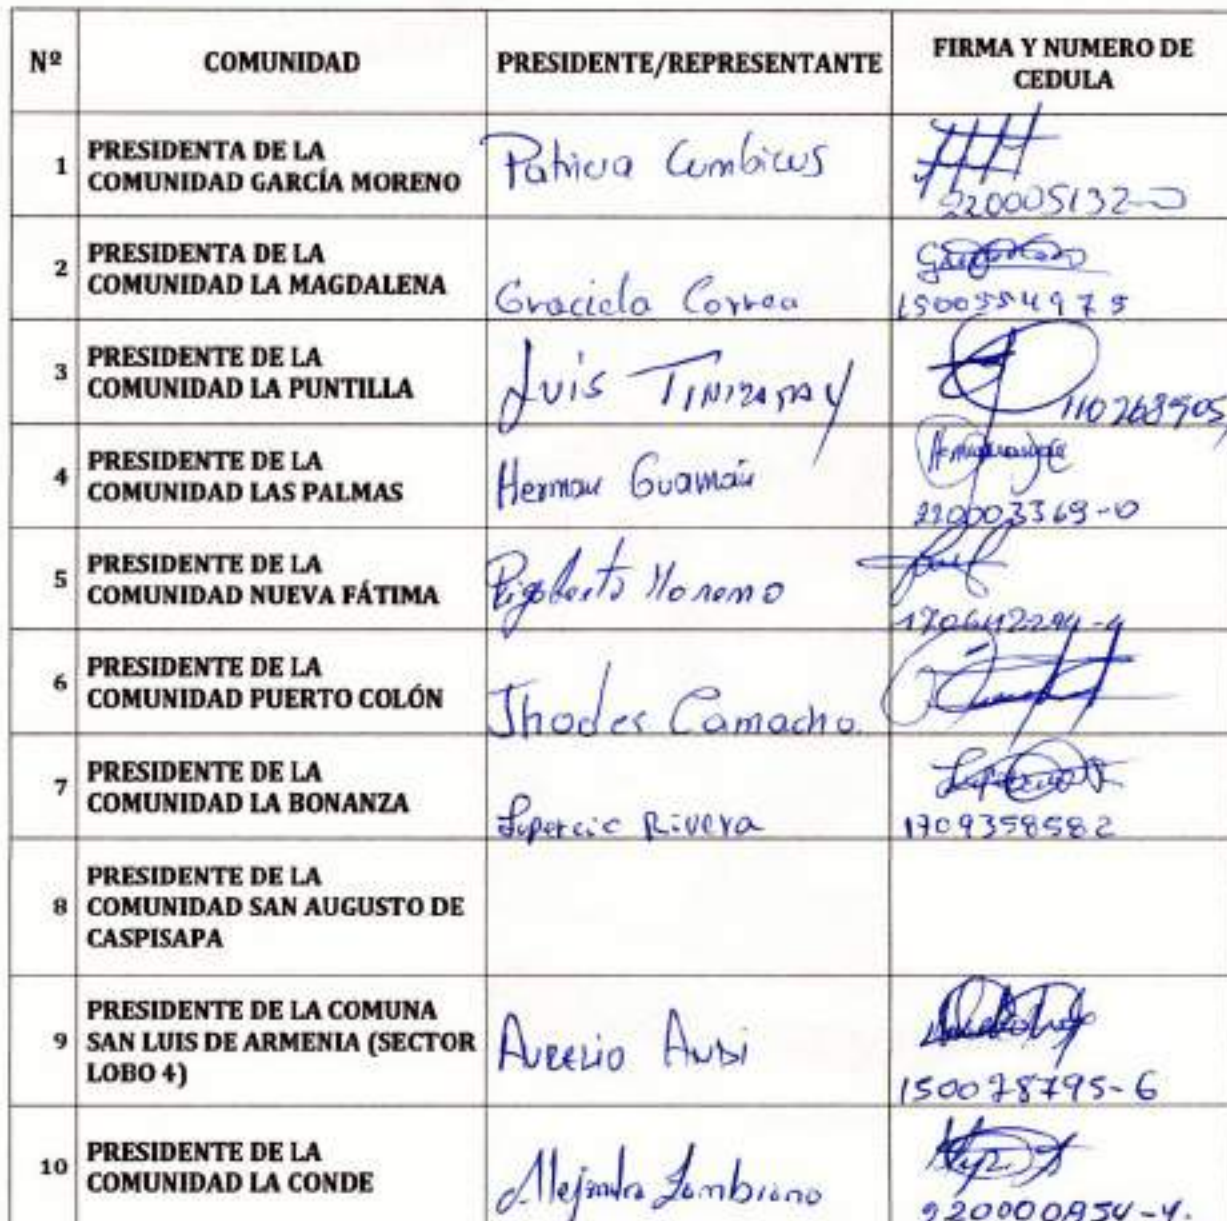 Nº COMUNIDAD PRESIDENTE/REPRESENTANTE FIRMA Y NUMERO DE
CEDULA
1 PRESIDENTA DE LA
COMUNIDAD GARCÍA MORENO Patricia Cumbicus
220005132-0
2 PRESIDENTA DE LA
COMUNIDAD LA MAGDALENA Graciela Correa
1500554975
3 PRESIDENTE DE LA
COMUNIDAD LA PUNTILLA Luis
110268905
4 PRESIDENTE DE LA
COMUNIDAD LAS PALMAS Herman Guamán
220003369-0
5 PRESIDENTE DE LA
COMUNIDAD NUEVA FÁTIMA Rigoberto Moreno
6 PRESIDENTE DE LA
COMUNIDAD PUERTO COLÓN Jhodes Camacho.
7 PRESIDENTE DE LA
COMUNIDAD LA BONANZA Lupercio Rivera
1709358582
8 PRESIDENTE DE LA
COMUNIDAD SAN AUGUSTO DE
CASPISAPA
9 PRESIDENTE DE LA COMUNA
SAN LUIS DE ARMENIA (SECTOR
LOBO 4) Aurelio Andi
150078795-6
10 PRESIDENTE DE LA
COMUNIDAD LA CONDE Alejandro Zambrano